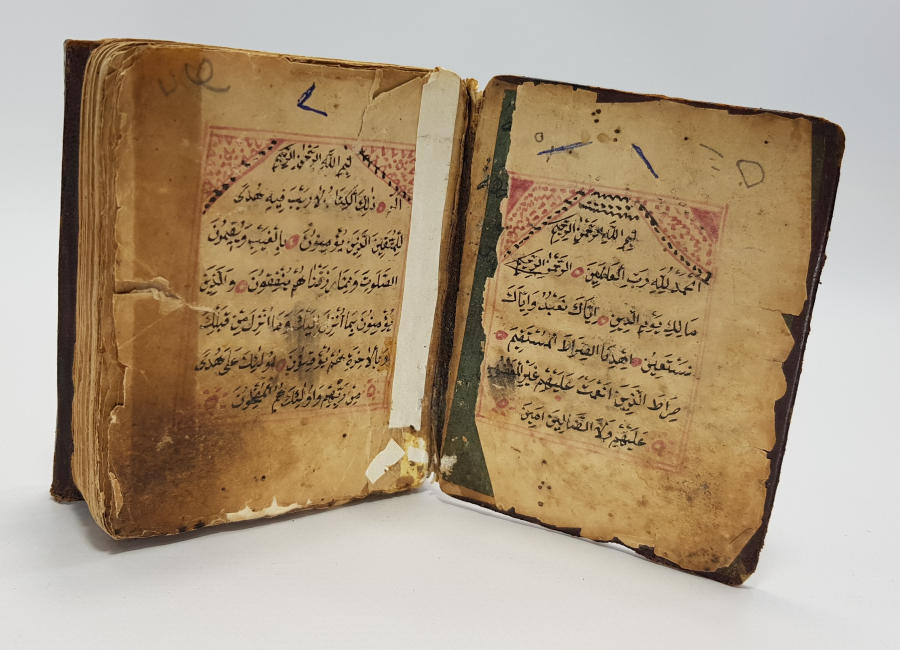 بسم الله الرحمن الرحيم
الحمد لله رب العالمين الرحمن الرحيم
مالك يوم الدين اياك نعبد واياك
نستعين اهدنا الصراط المستقيم
صراط الذين انعمت عليهم غير المغضوب
عليهم ولا الضالين امين
بسم الله الرحمن الرحيم
الم ذلك الكتاب لا ريب فيه هدى
للمتقين الذين يؤمنون بالغيب ويقيمون
الصلوت ومما رزقناهم ينفقون والذين
يؤمنون بما انزل اليك وما انزل من قبلك
وبالاخرة هم يوقنون اولئك على هدى
من ربهم واولئك هم المفلحون